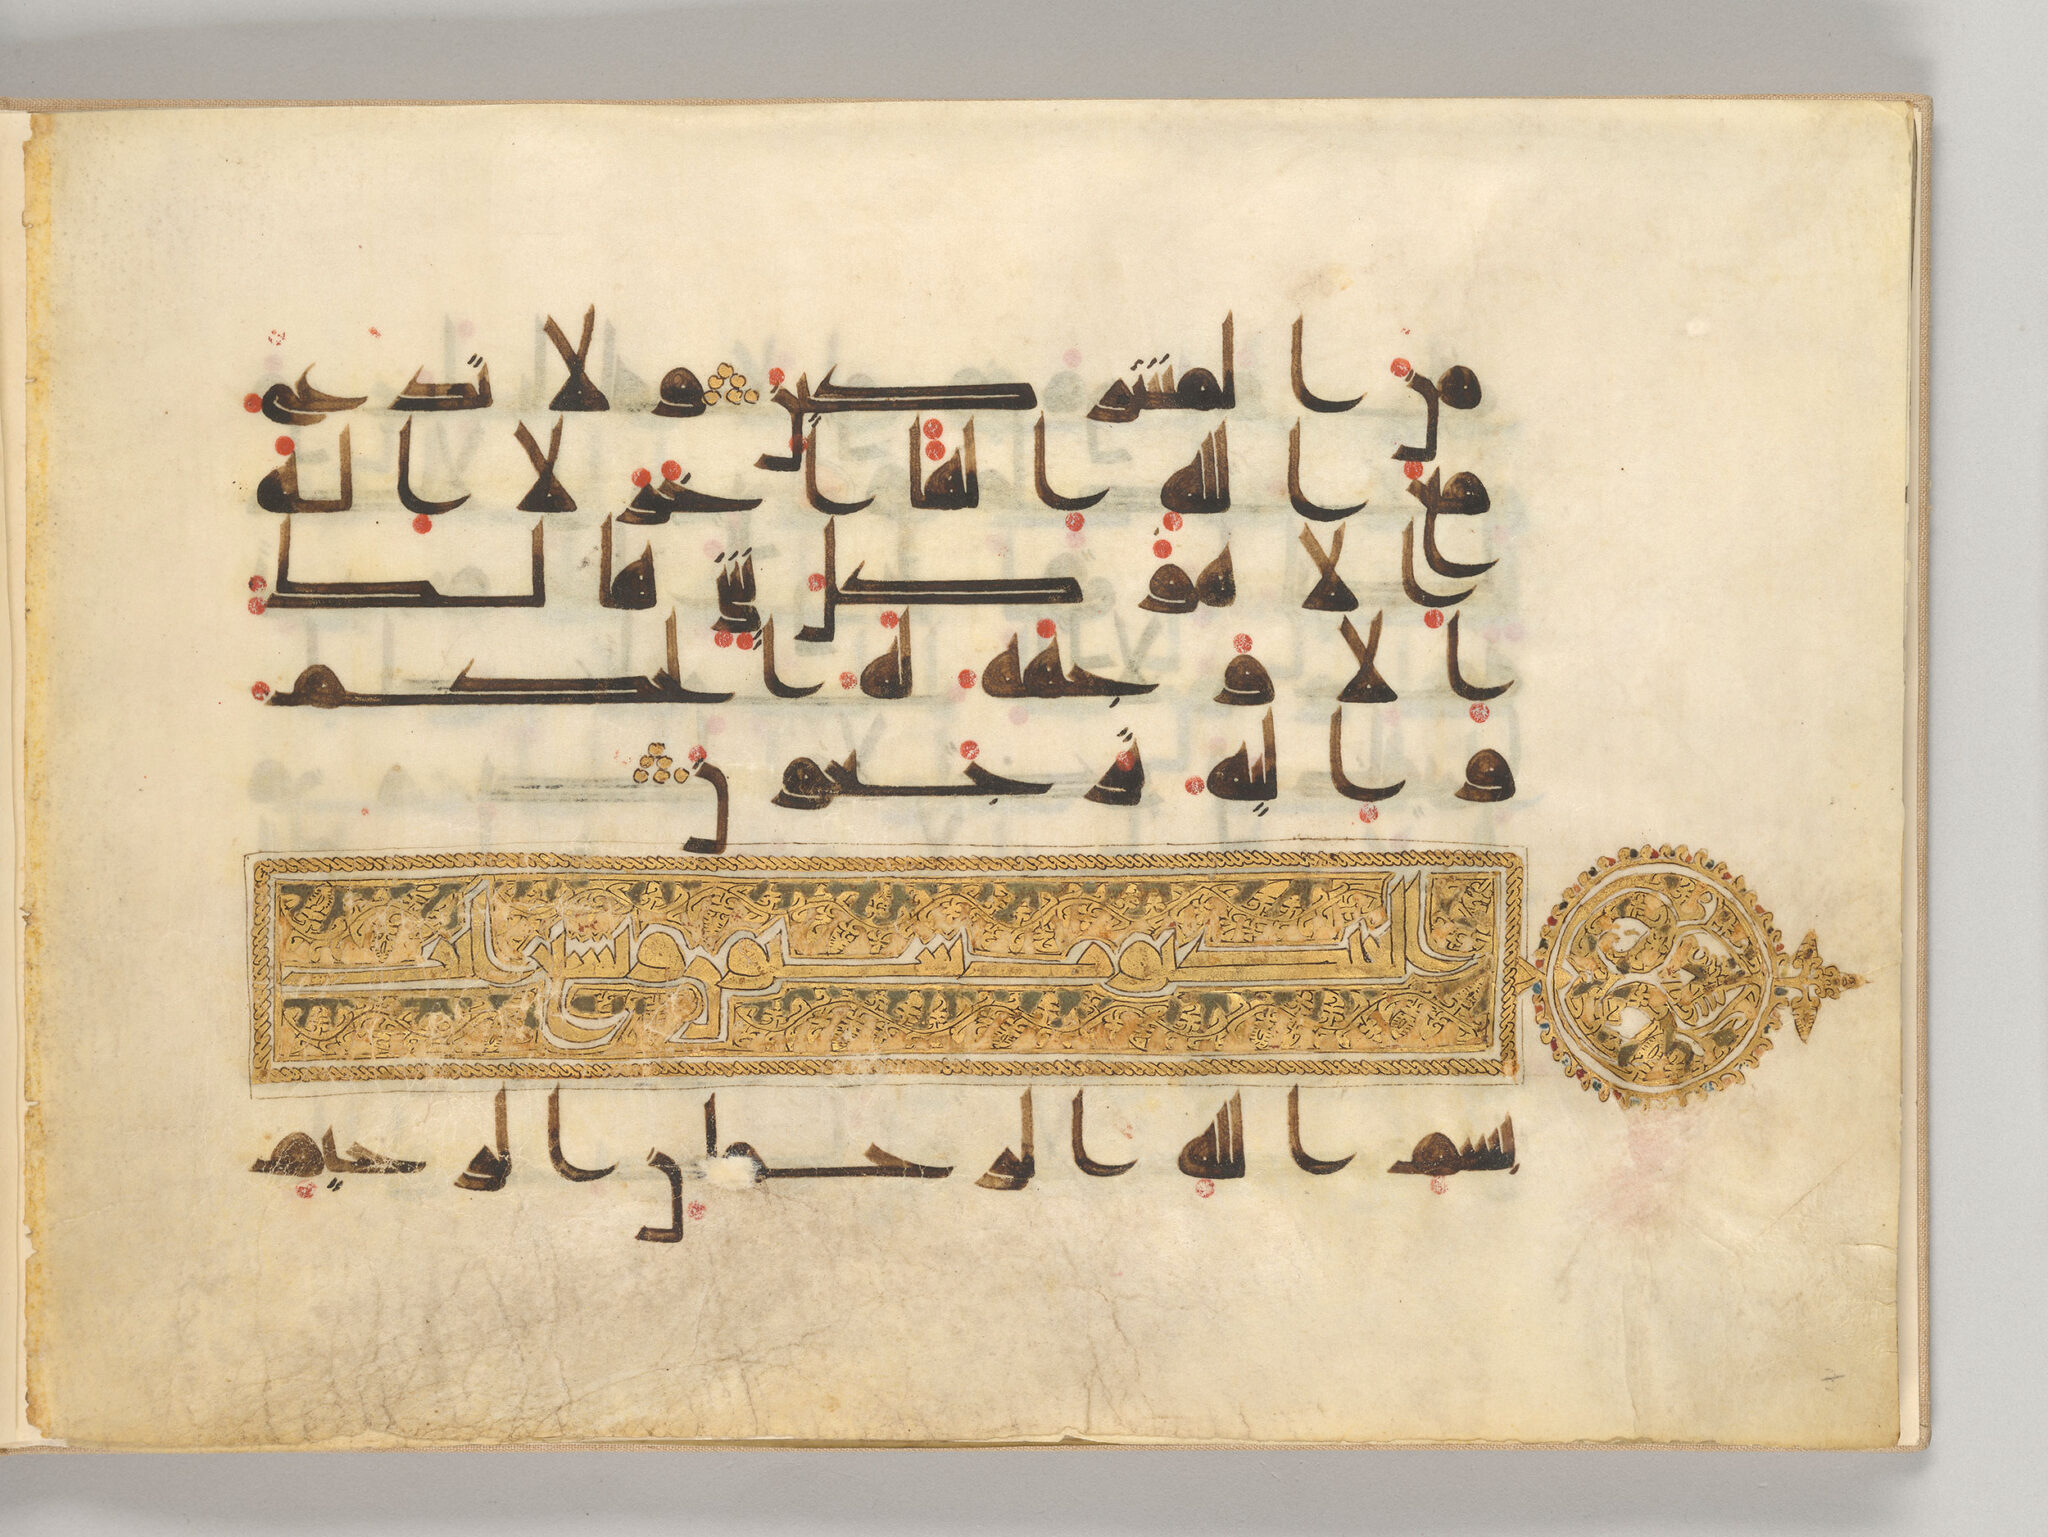 من المشركين ولا تدع
مع الله الها اخر لا اله
الا هو كل شي هالك
الا وجهه له الحكم
واليه ترجعون
العنكبوت ستون وتسع ايت
بسم الله الرحمن الرحيم